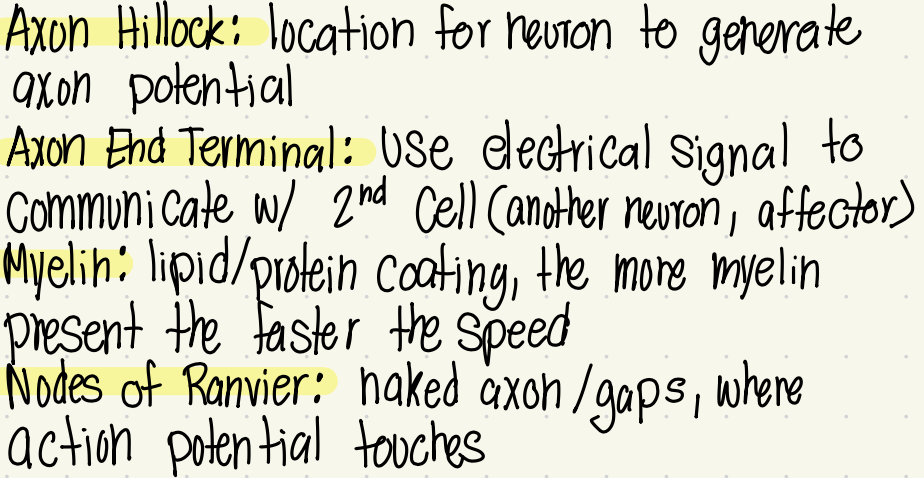 Axon Hillock: location for neuron to generate
axon potential
Axon End Terminal: Use electrical signal to
communicate w/ 2nd Cell (another neuron, affector)
Myelin: lipid/protein coating, the more myelin
present the faster the speed
Nodes of Ranvier: naked axon/gaps, where
action potential touches